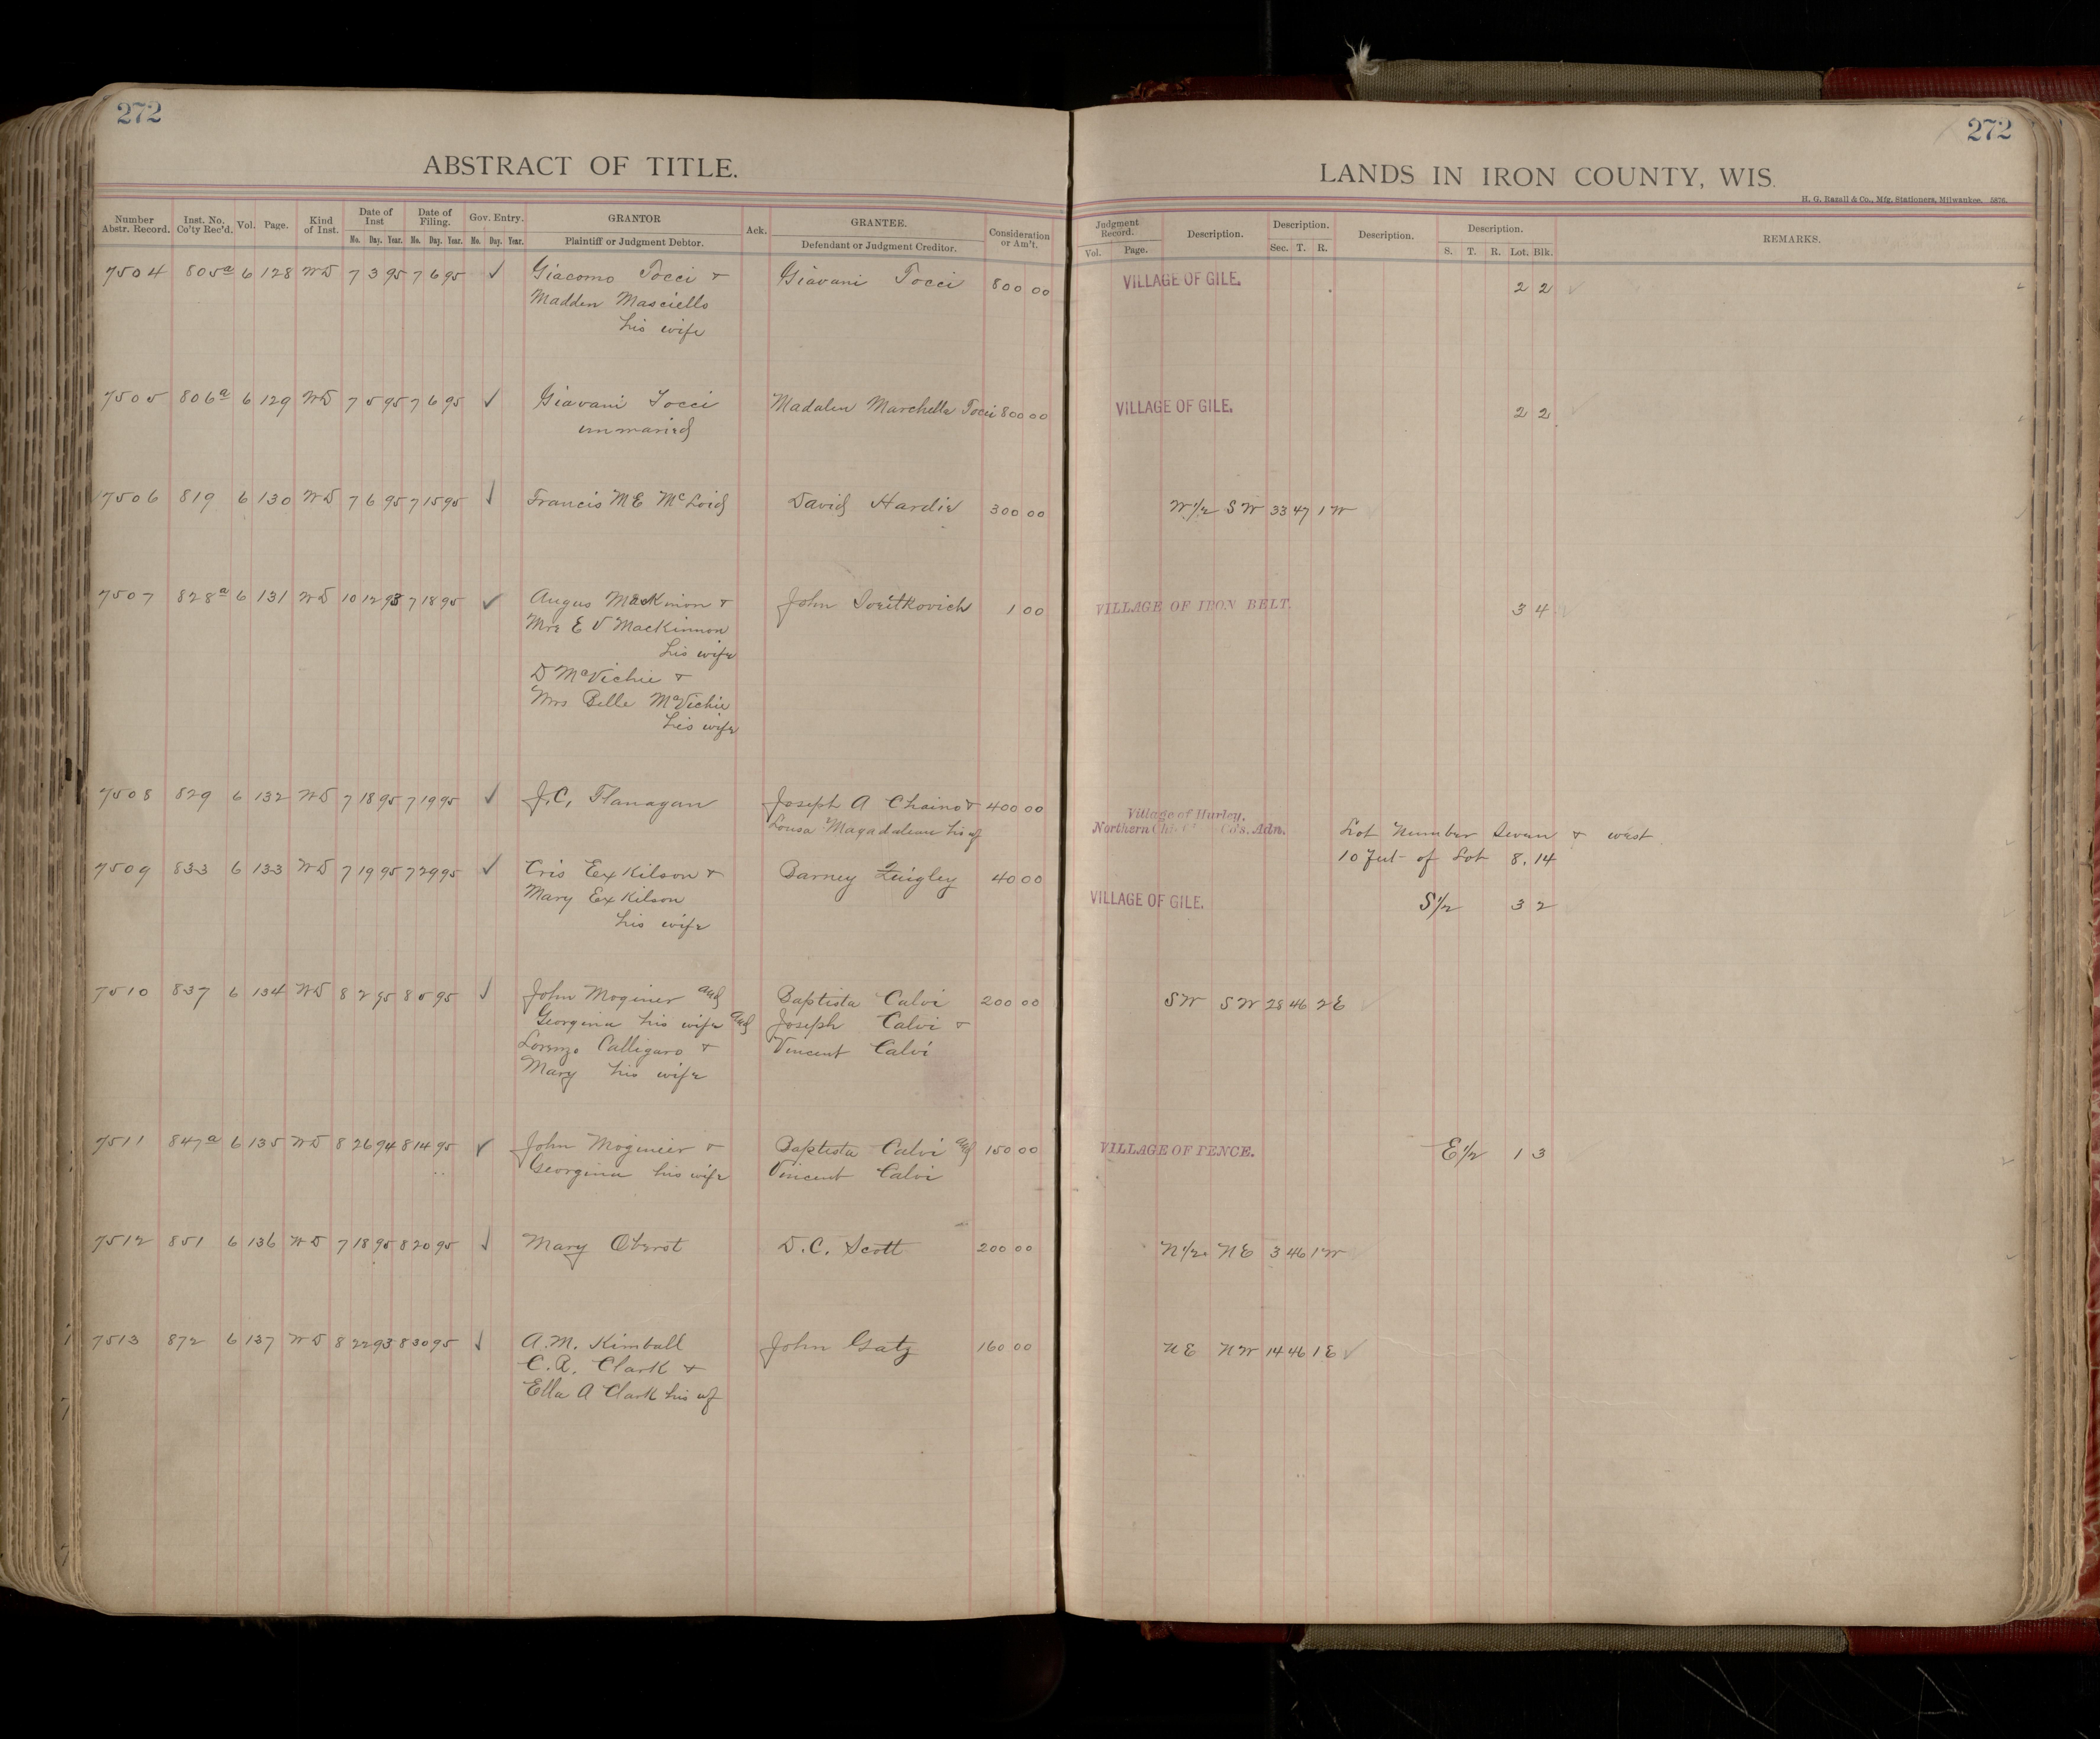 272
ABSTRACT OF TITLE.
Number Abstr. Record. Inst. No. Co'ty Rec'd. Vol. Page. Kind of Inst. Date of Inst Mo. Day. Year. Date of Filing. Mo. Day. Year. Gov. Entry. Mo. Day. Year. GRANTOR Plaintiff or Judgment Debtor. Ack. GRANTEE. Defendant or Judgment Creditor. Consideration or Am't.
7504 805a 6 128 WD 7 3 95 7 6 95 ✓ Giacomo Tocci & Giavani Tocci 800 00
Madden Masciello
his wife
7505 806a 6 129 WD 7 5 95 7 6 95 ✓ Giavani Tocci Madalen Marchella Tocci 800 00
unmaried
7506 819 6 130 WD 7 6 95 7 15 95 ✓ Francis ME McLoid David Hardie 300 00
7507 828a 6 131 WD 10 12 93 7 18 95 ✓ Angus MacKinon & John 1 00
Mrs E V MacKinnon
his wife
D McVichie &
Mrs Belle McVichie
his wife
7508 829 6 132 WD 7 18 95 7 19 95 ✓ J.C. Flanagan Joseph A Chaino & 400 00
Lousa Magadalean his wf
7509 833 6 133 WD 7 19 95 7 29 95 ✓ Cris Ex Kilson & Barney Quigley 40 00
Mary Ex Kilson
his wife
7510 837 6 134 WD 8 2 95 8 5 95 ✓ John Moginier and Baptista Calvi 200 00
Georgina his wife and Joseph Calvi &
Lorenzo Calligaro & Vincent Calvi
Mary his wife
7511 847a 6 135 WD 8 26 94 8 14 95 ✓ John Moginier & Baptista Calvi and 150 00
Georgina his wife Vincent Calvi
7512 851 6 136 WD 7 18 95 8 20 95 ✓ Mary Oberst D.C. Scott 200 00
7513 872 6 137 WD 8 22 93 8 30 95 ✓ A.M. Kimball John Gatz 160 00
C.R. Clark &
Ella A Clark his wf
272
LANDS IN IRON COUNTY, WIS.
H. G. Razall & Co., Mfg. Stationers, Milwaukee. 5876.
Judgment Record. Vol. Page. Description. Description. Sec. T. R. Description. Description. S. T. R. Lot. Blk. REMARKS.
VILLAGE OF GILE. 2 2 ✓
VILLAGE OF GILE. 2 2 ✓
W1/2 SW 33 47 1W
VILLAGE OF IRON BELT. 3 4
Village of Hurley.
Northern Chief Co's. Adn. Lot Number Seven & west
10 Feet of Lot 8. 14
VILLAGE OF GILE. S1/2 3 2
SW SW 28 46 2E ✓
VILLAGE OF PENCE. E1/2 1 3
N1/2 NE 3 46 1W
NE NW 14 46 1E ✓